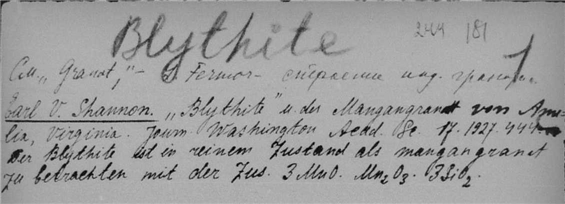 Blythite
244 181
См. "Granat," - Fermor -
Earl V. Shannon. "Blythite" u. der Mangangranat von Ame-
lia, Virginia. Journ. Washington Acad. Sc. 17. 1927. 444
Der Blythite ist in reinem Zustand als mangangranat
zu betrachten mit der Zus. 3MnO. Mn₂O₃. 3SiO₂.